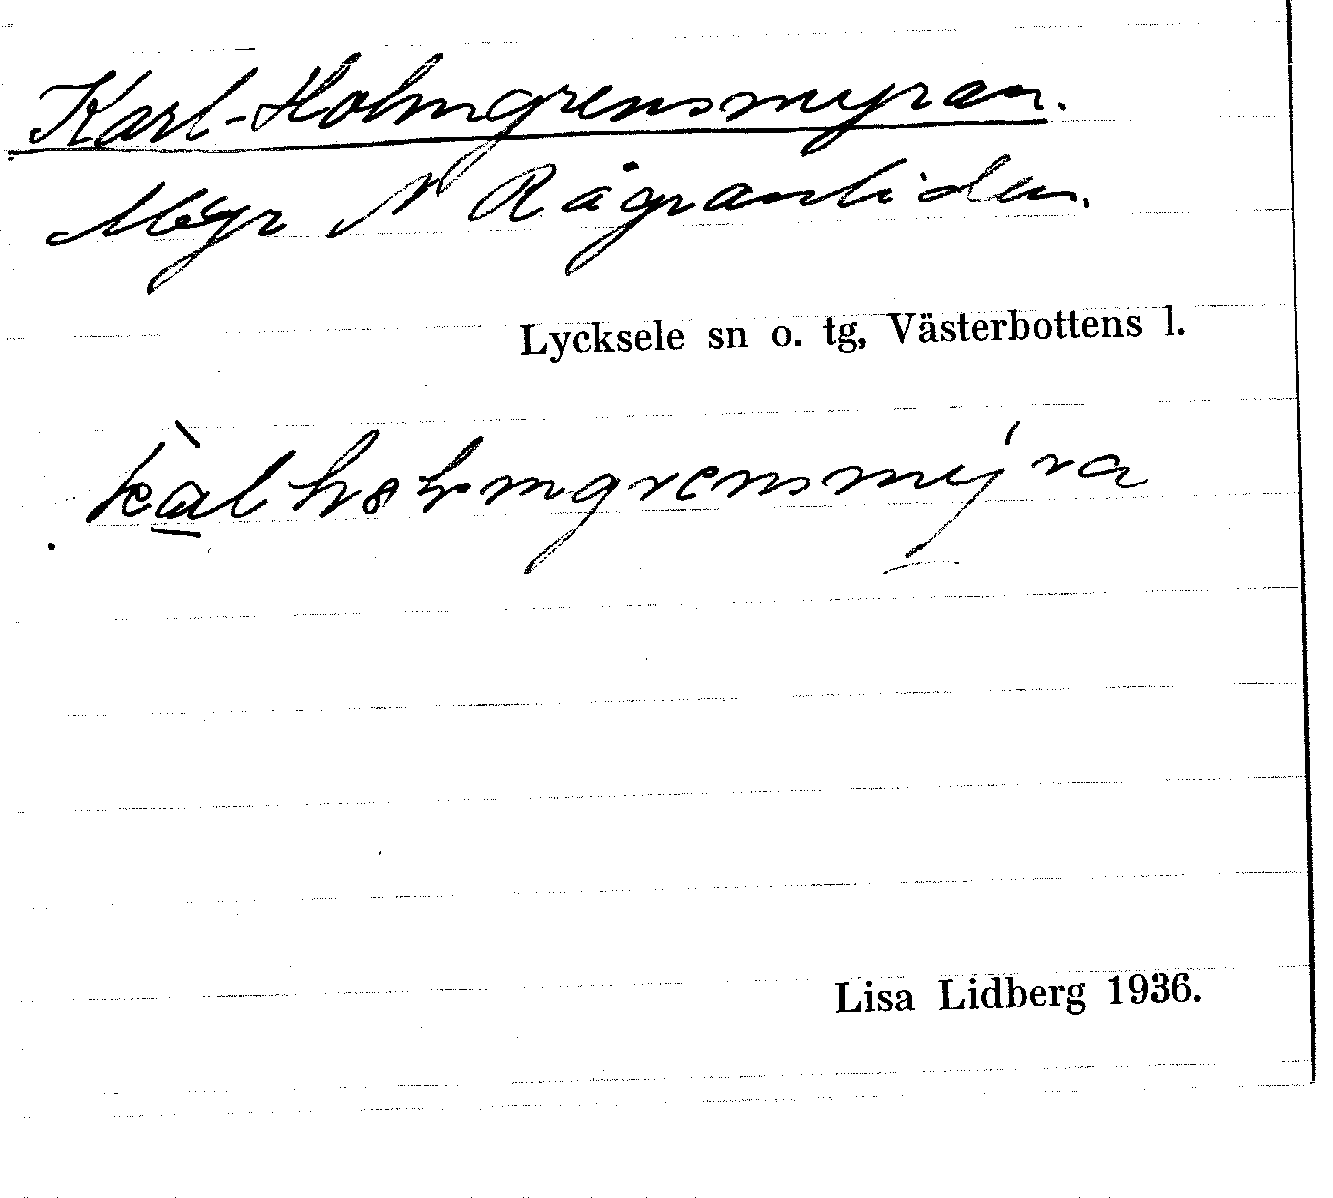 Karl-Holmgrensmyran.
Myr N Rågranliden.
Lycksele sn o. tg, Västerbottens l.
Lisa Lidberg 1936.